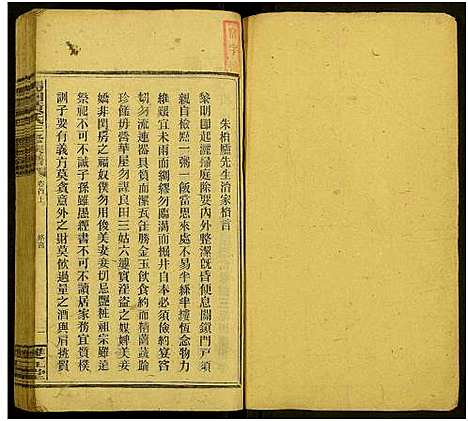 朱柏廬先生治家格言
黎明即起灑掃庭除要內外整潔旣昏便息關鎖門戸須
親自檢點一粥一飯當思來處不易半絲半縷恆念物力
維艱宜未雨而綢繆勿臨渴而掘井自奉必須儉約宴客
切勿流連器具質而潔瓦缶勝金玉飲食約而精園蔬踰
珍饈毋營華屋勿謀良田三姑六婆實淫盜之媒婢美妾
嬌非閨房之福奴僕勿用俊美妻妾切忌艷粧祖宗雖遠
祭祀不可不誠子孫雖愚經書不可不讀居家務宜質樸
訓子要有義方莫貪意外之財莫飲過量之酒與肩挑貿
卷首上